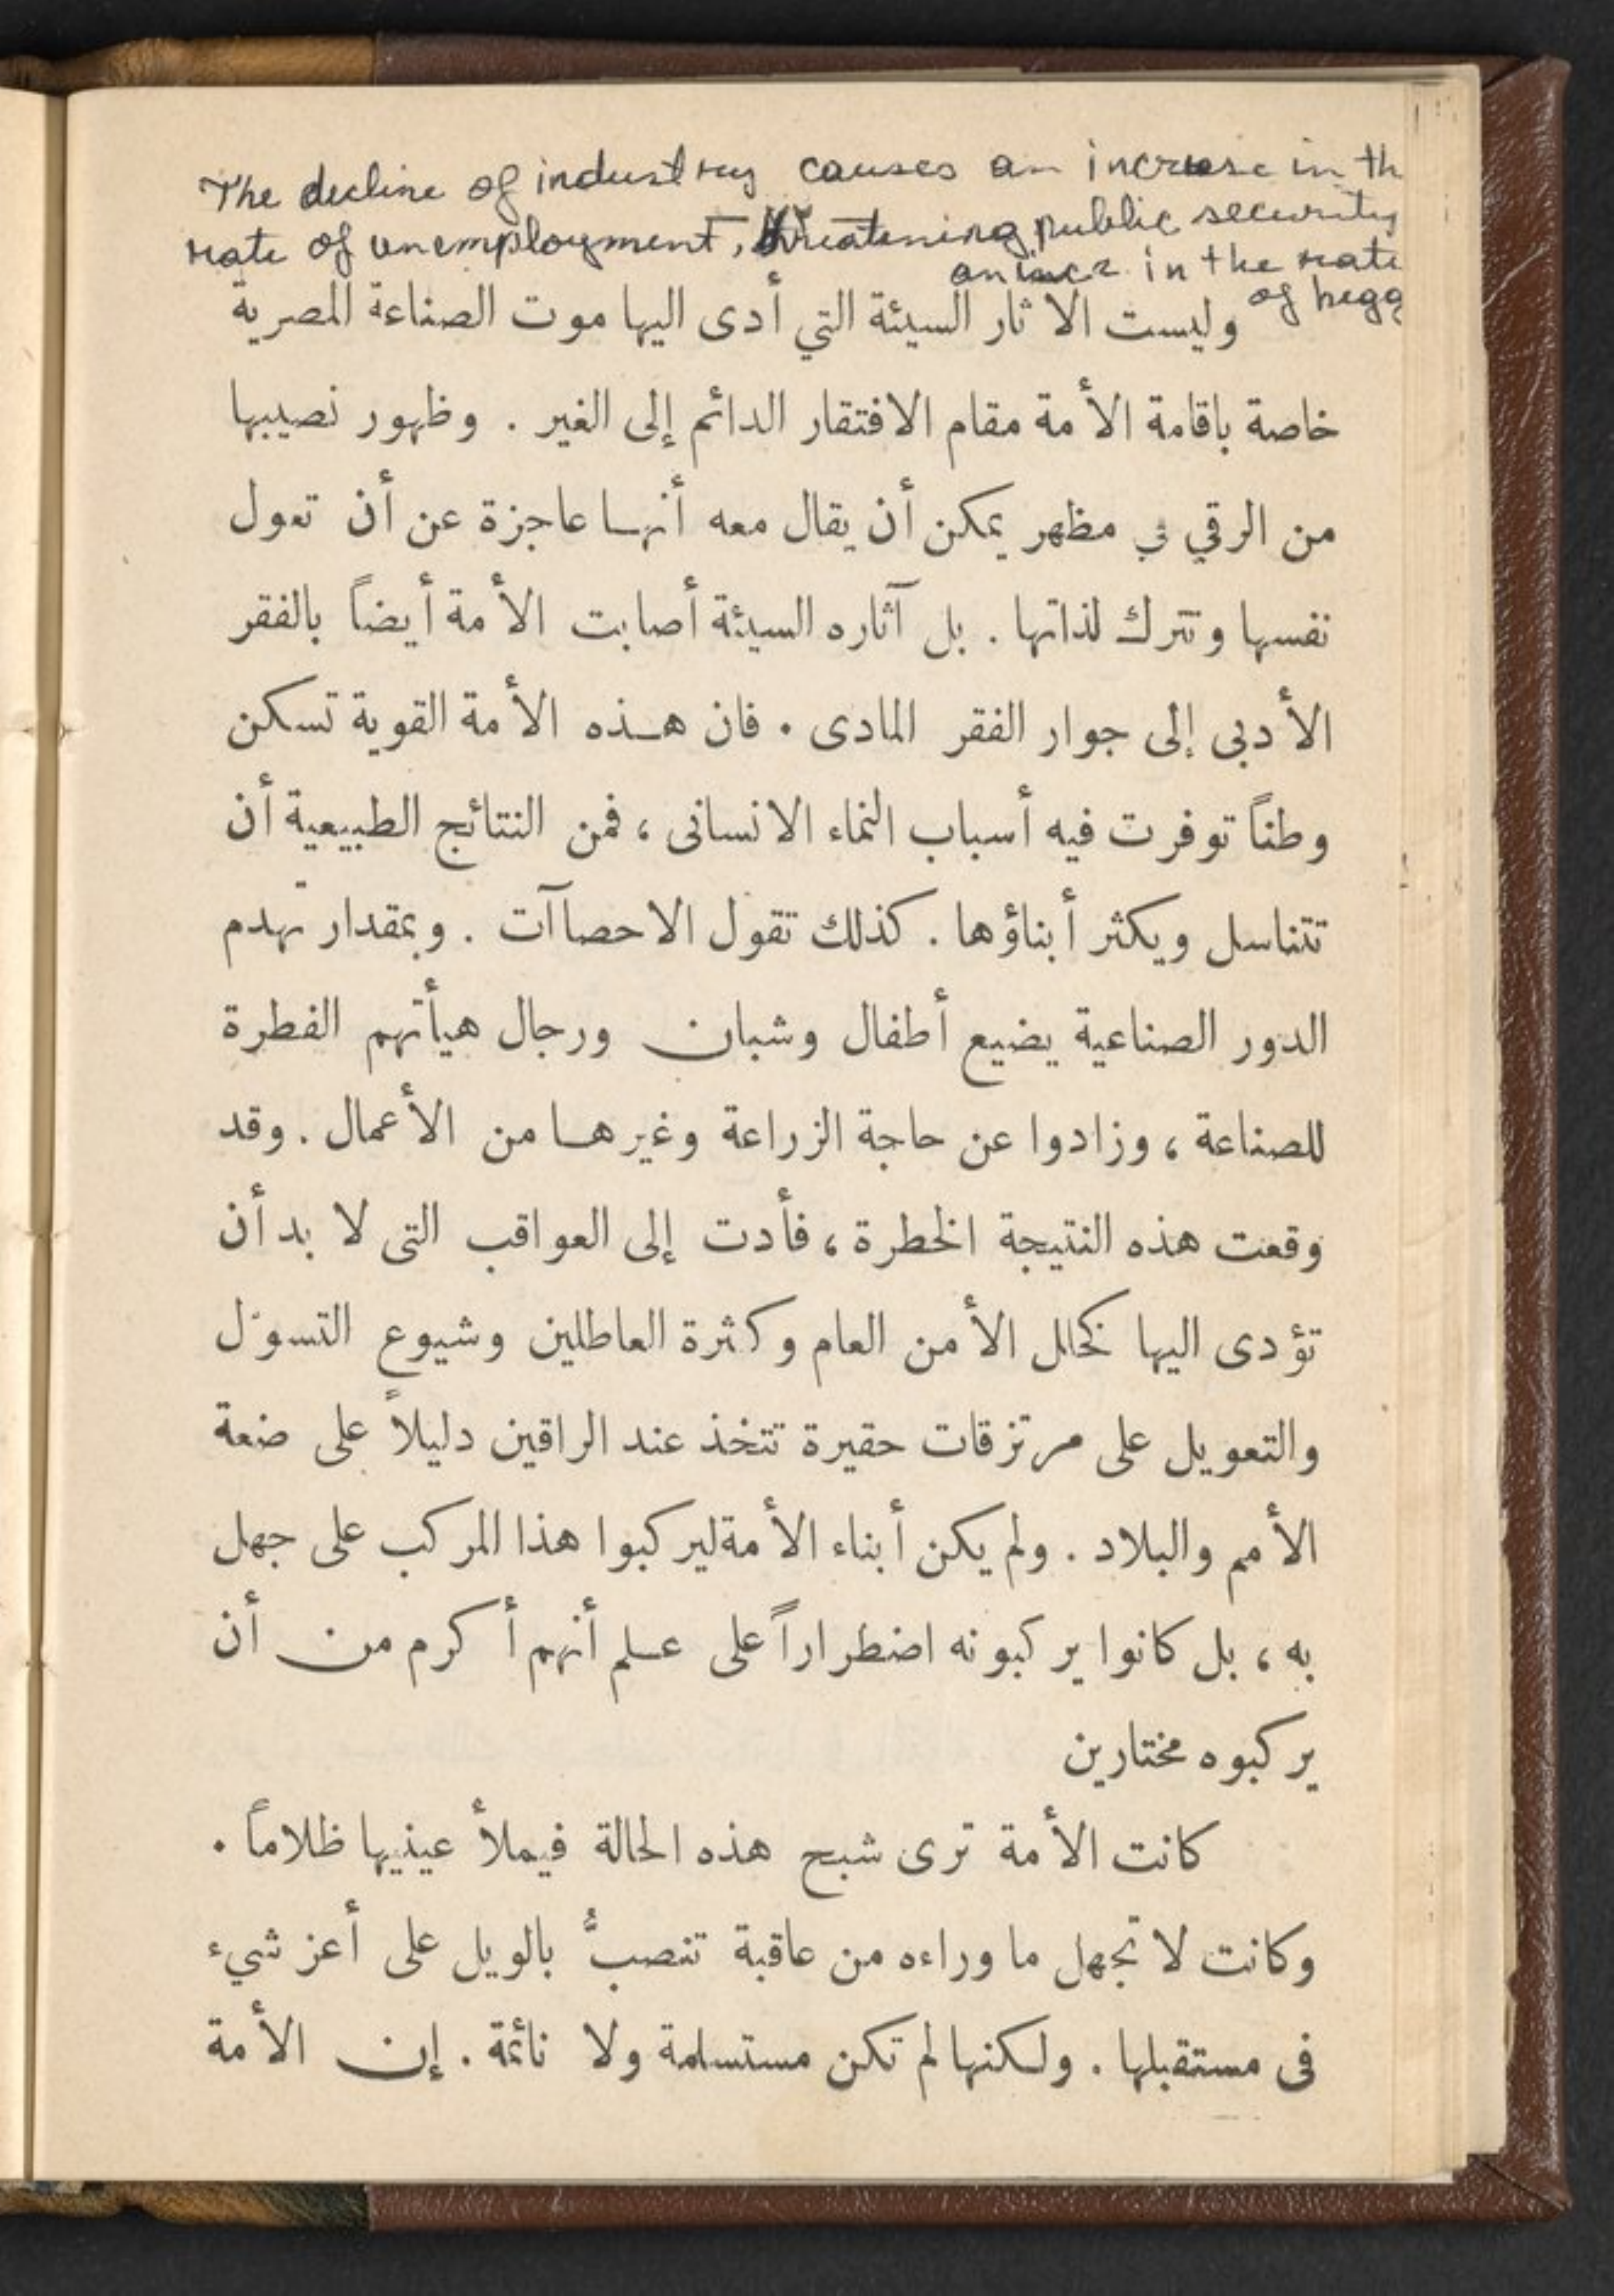 The decline of industry causes an increase in th
rate of unemployment, threatening public security
an incr. in the rate
of begg
وليست الآثار السيئة التي أدى اليها موت الصناعة المصرية
خاصة باقامة الأمة مقام الافتقار الدائم إلى الغير . وظهور نصيبها
من الرقي في مظهر يمكن أن يقال معه أنها عاجزة عن أن تعول
نفسها وتترك لذاتها . بل آثاره السيئة أصابت الأمة أيضاً بالفقر
الأدبى إلى جوار الفقر المادى . فان هذه الأمة القوية تسكن
وطناً توفرت فيه أسباب النماء الانسانى ، فمن النتائج الطبيعية أن
تتناسل ويكثر أبناؤها . كذلك تقول الاحصاآت . وبمقدار تهدم
الدور الصناعية يضيع أطفال وشبان ورجال هيأتهم الفطرة
للصناعة ، وزادوا عن حاجة الزراعة وغيرها من الأعمال . وقد
وقعت هذه النتيجة الخطرة ، فأدت إلى العواقب التى لا بد أن
تؤدى اليها كخلل الأمن العام وكثرة العاطلين وشيوع التسوّل
والتعويل على مرتزقات حقيرة تتخذ عند الراقين دليلاً على ضعة
الأمم والبلاد . ولم يكن أبناء الأمة ليركبوا هذا المركب على جهل
به ، بل كانوا يركبونه اضطراراً على علم أنهم أكرم من أن
يركبوه مختارين
كانت الأمة ترى شبح هذه الحالة فيملأ عينيها ظلاماً .
وكانت لا تجهل ما وراءه من عاقبة تنصبُّ بالويل على أعز شيء
فى مستقبلها . ولكنها لم تكن مستسلمة ولا نائمة . إن الأمة